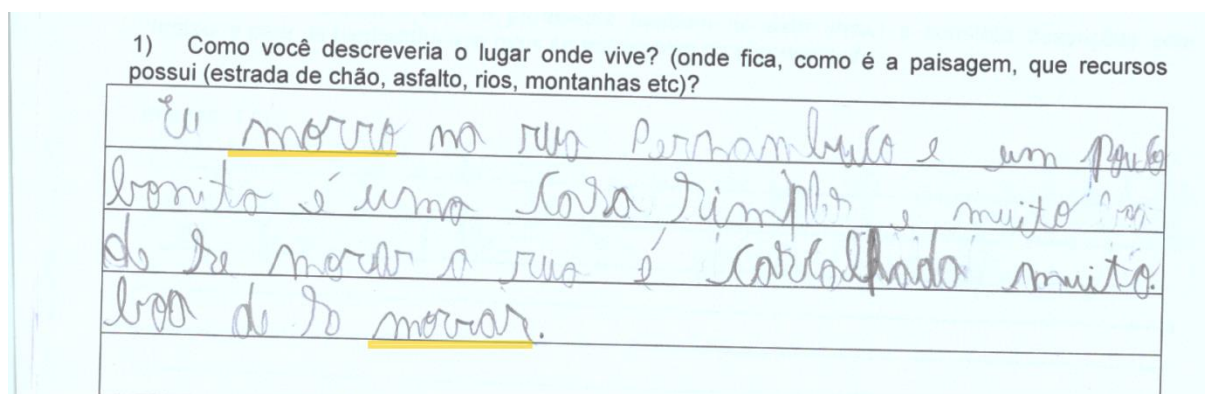 1) Como você descreveria o lugar onde vive? (onde fica, como é a paisagem, que recursos
possui (estrada de chão, asfalto, rios, montanhas etc)?
Eu morro na rua Pernambuco e um pouco
bonito é uma casa simples e muito
de se morar a rua é muito.
boa de so morrar.